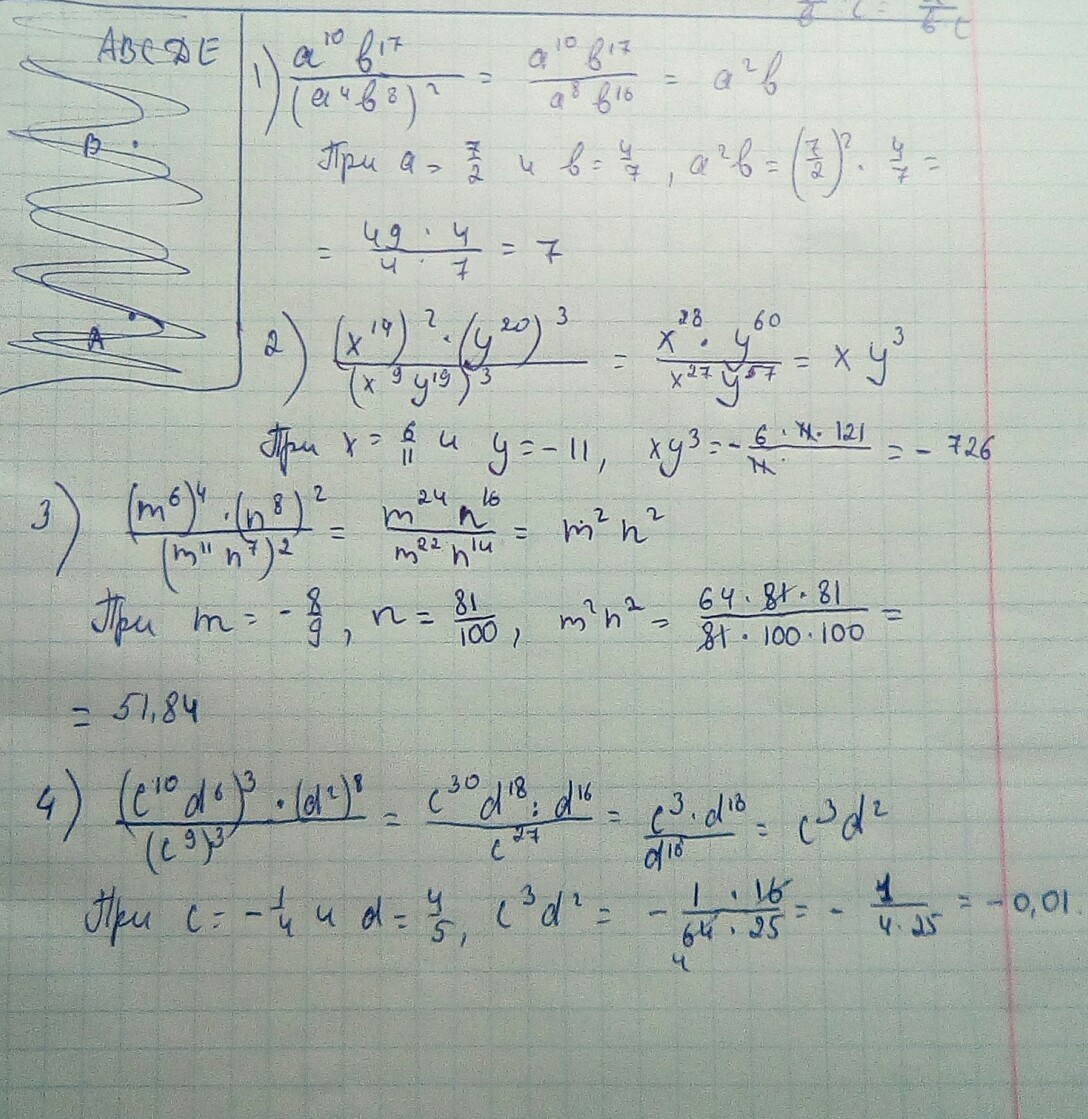 ABCDE
B
A
1) a¹⁰b¹⁷/(a⁴b⁸)² = a¹⁰b¹⁷/a⁸b¹⁶ = a²b
При a = 7/2 и b = 4/7, a²b = (7/2)² · 4/7 =
= 49 · 4/4 · 7 = 7
2) (x¹⁴)² · (y²⁰)³/(x⁹y¹⁹)³ = x²⁸ · y⁶⁰/x²⁷y⁵⁷ = xy³
При x = 6/11 и y = -11, xy³ = - 6 · 11 · 121/11 · = - 726
3) (m⁶)⁴ · (n⁸)²/(m¹¹n⁷)² = m²⁴n¹⁶/m²²n¹⁴ = m²n²
При m = - 8/9, n = 81/100, m²n² = 64 · 81 · 81/81 · 100 · 100 =
= 51,84
4) (c¹⁰d⁶)³ · (d²)⁸/(c⁹)³ = c³⁰d¹⁸ : d¹⁶/c²⁷ = c³ · d¹⁸/d¹⁶ = c³d²
При c = - 1/4 и d = 4/5, c³d² = - 1 · 16/64 · 25 = - 1/4 · 25 = - 0,01
4